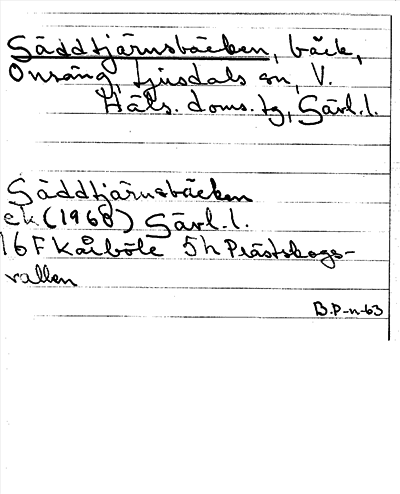 Gäddtjärnsbäcken, bäck,
Onsäng, Ljusdals sn, V.
Häls. doms. tg, Gävl. l.
Gäddtjärnsbäcken
ek (1968) Gävl. l.
16 F Kårböle 5 h Prästskogs-
vallen
B.P-n-63